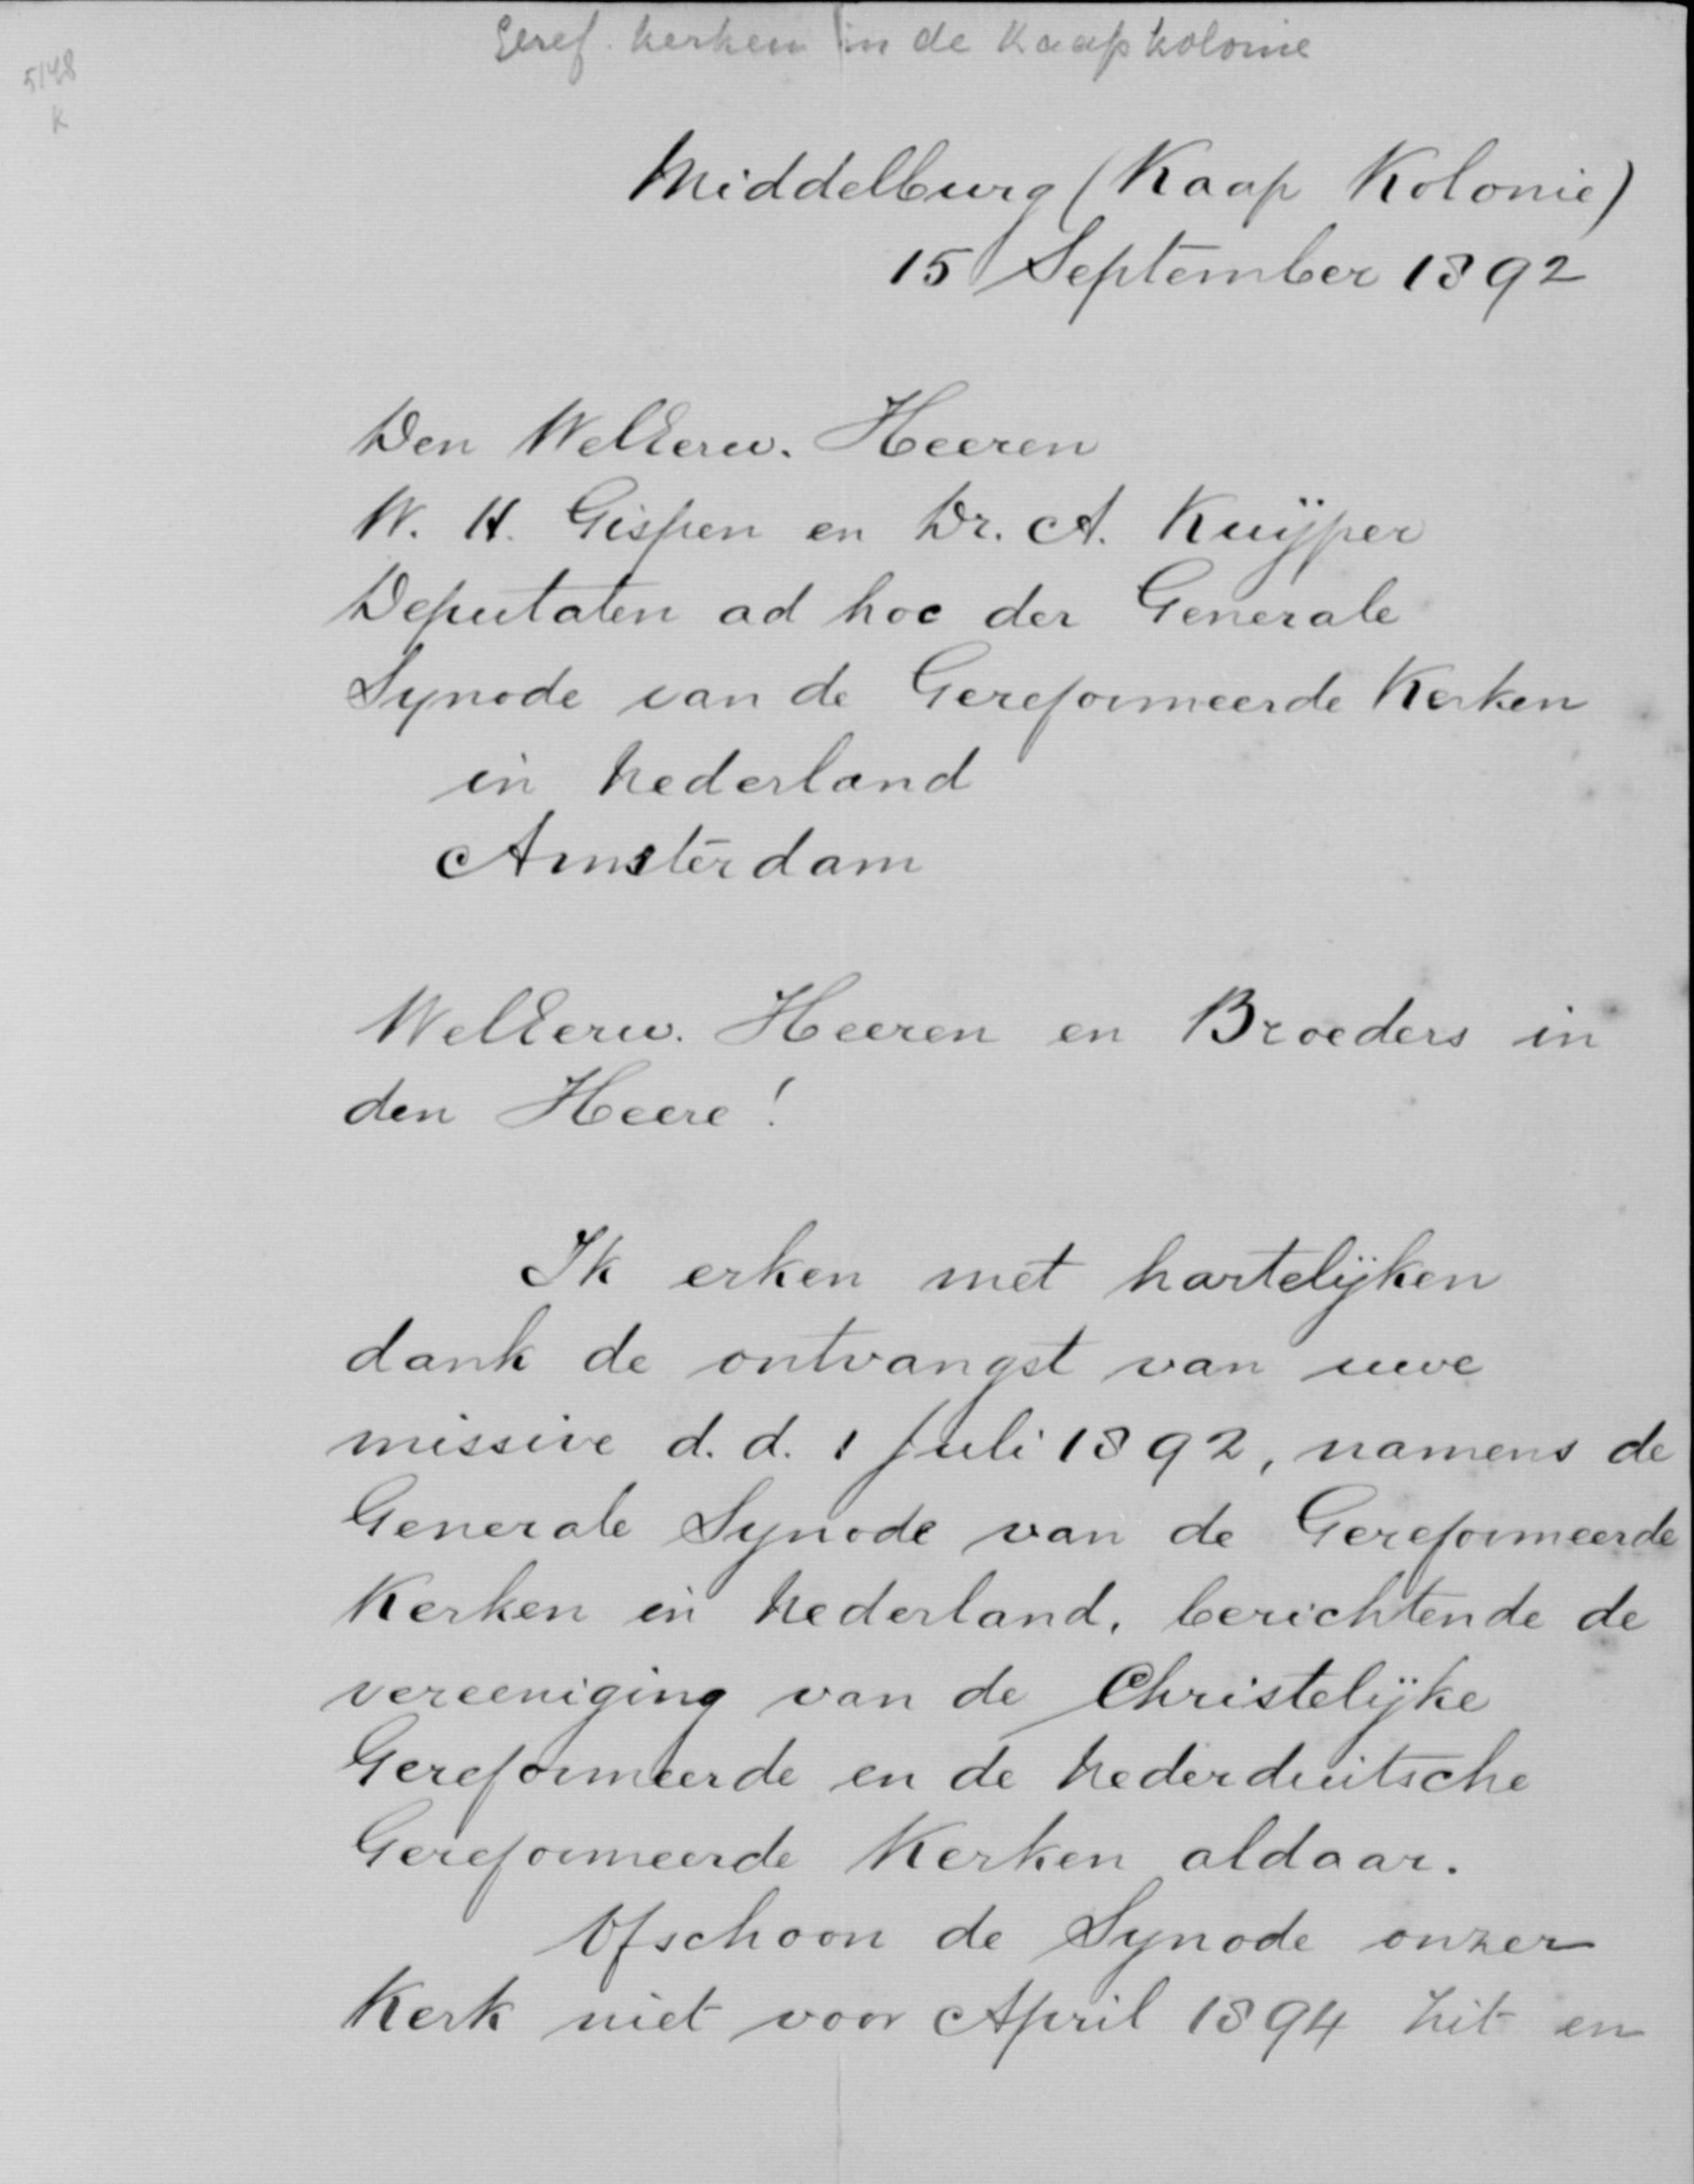 Geref. kerken in de Kaapkolonie
5148
K
Middelburg (Kaap Kolonie)
15 September 1892
Den WelEerw. Heeren
W. H. Gispen en Dr. A. Kuijper
Deputaten ad hoc der Generale
Synode van de Gereformeerde Kerken
in Nederland
Amsterdam
WelEerw. Heeren en Broeders in
den Heere!
Ik erken met hartelijken
dank de ontvangst van uwe
missive d. d. 1 Juli 1892, namens de
Generale Synode van de Gereformeerde
Kerken in Nederland, berichtende de
vereeniging van de Christelijke
Gereformeerde en de Nederduitsche
Gereformeerde Kerken aldaar.
Ofschoon de Synode onzer
Kerk niet voor April 1894 zit en